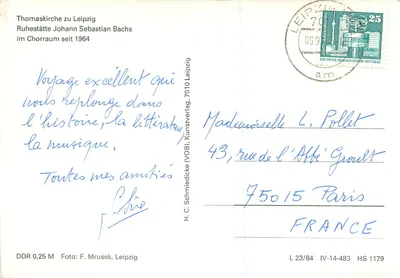 Thomaskirche zu Leipzig
Ruhestätte Johann Sebastian Bachs
im Chorraum seit 1964
Voyage excellent qui
nous replonge dans
l'histoire, la littérature,
la musique.
Toutes mes amitiés
H. C. Schmiedicke (VOB), Kunstverlag, 7010 Leipzig
LEIPZIG
am
25
DEUTSCHE DEMOKRATISCHE REPUBLIK
Mademoiselle L. Pollet
43, rue de l'Abbé Groult
75015 Paris
FRANCE
DDR 0,25 M Foto: F. Mrusek, Leipzig
L 23/84 IV-14-483 HS 1179